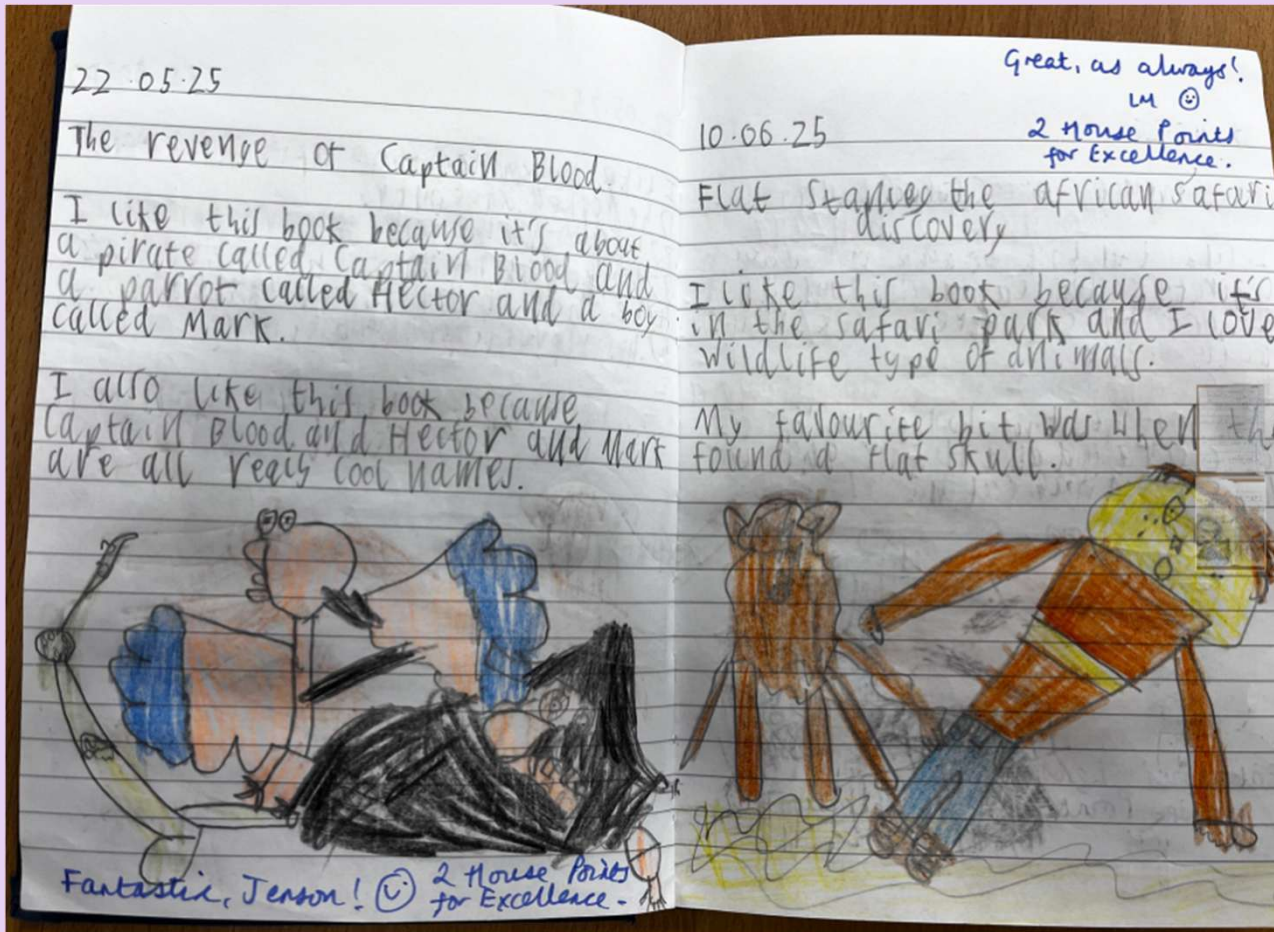 22.05.25
The revenge of Captain Blood.
I like this book because it's about
a pirate called Captain Blood and
a parrot called Hector and a boy
called Mark.
I also like this book because
Captain Blood and Hector and Mark
are all realy cool names.
Fantastic, Jenson!
2 House Points
for Excellence.
Great, as always!
LM
2 House Points
for Excellence.
10.06.25
Flat Stanley the african safari
discovery
I like this book because it's
in the safari park and I love
wildlife type of animals.
My favourite bit was when th
found a flat skull.